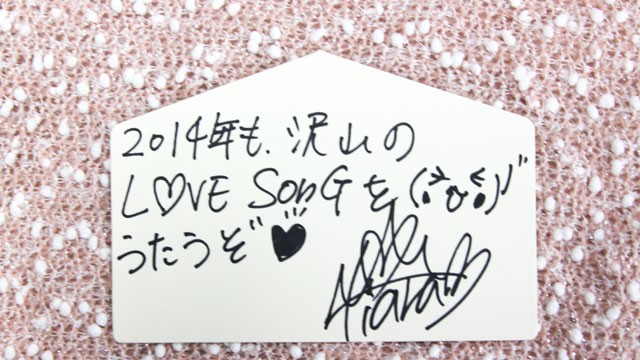 2014年も、沢山の
L♡VE SonGを (>᎑<)ﾉﾞ
うたうぞ♥